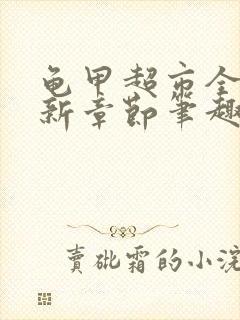 龟甲超市全
新章节笔趣
賣砒霜的小浣